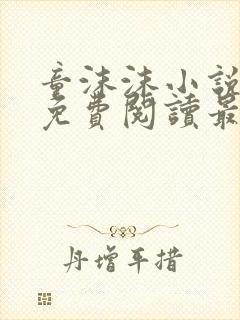 童沫沫小說
免費閱讀最
丹增平措